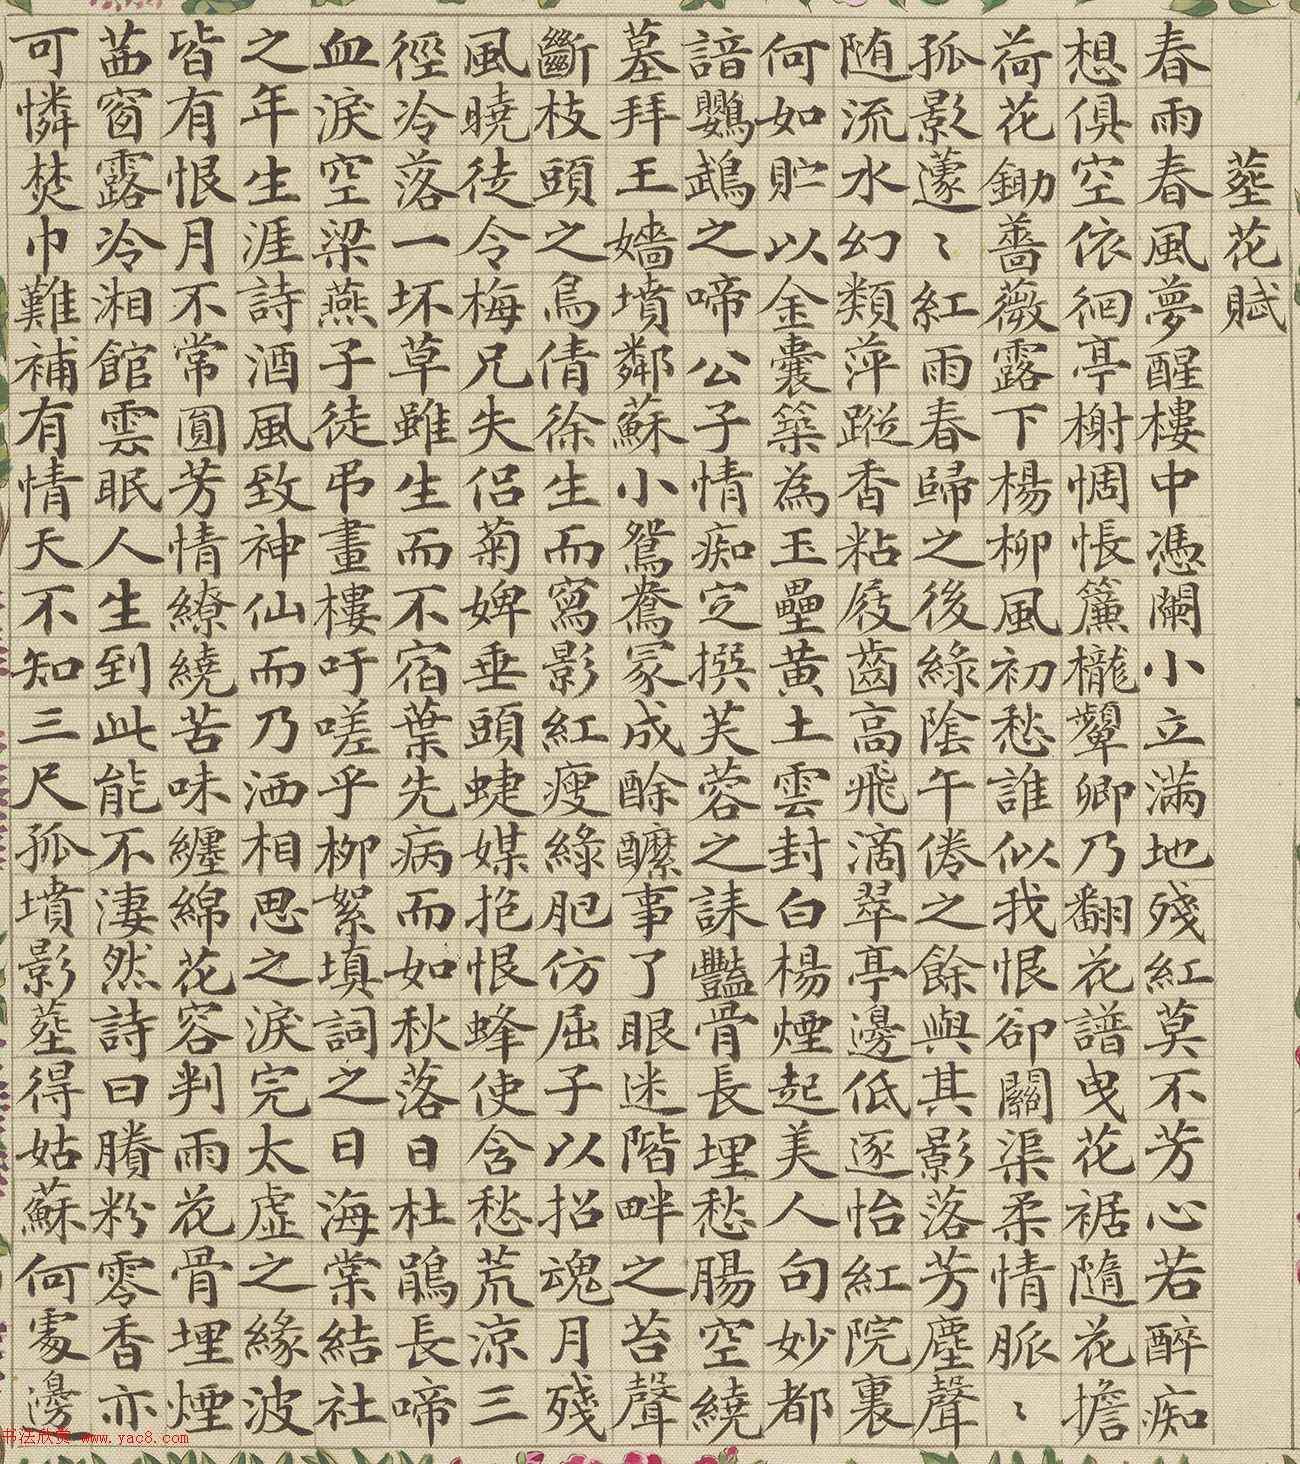 葬花賦
春雨春風夢醒樓中憑闌小立滿地殘紅莫不芳心若醉痴
想俱空依徊亭榭惆悵簾櫳顰卿乃翻花譜曳花裾隨花擔
荷花鋤薔薇露下楊柳風初愁誰似我恨卻關渠柔情脈〻
孤影蘧〻紅雨春歸之後綠陰午倦之餘與其影落芳塵聲
隨流水幻類萍蹤香粘屐齒高飛滴翠亭邊低逐怡紅院裏
何如貯以金囊築為玉壘黃土雲封白楊煙起美人句妙都
諳鸚鵡之啼公子情痴定撰芙蓉之誄豔骨長埋愁腸空繞
墓拜王嬙墳鄰蘇小鴛鴦冢成酴醾事了眼迷階畔之苔聲
斷枝頭之鳥倩徐生而寫影紅瘦綠肥仿屈子以招魂月殘
風曉徒令梅兄失侶菊婢垂頭蜨媒抱恨蜂使含愁荒涼三
徑冷落一坏草雖生而不宿葉先病而如秋落日杜鵑長啼
血淚空梁燕子徒弔畫樓吁嗟乎柳絮填詞之日海棠結社
之年生涯詩酒風致神仙而乃洒相思之淚完太虛之緣波
皆有恨月不常圓芳情繚繞苦味纏綿花容判雨花骨埋煙
茜窗露冷湘館雲眠人生到此能不淒然詩曰賸粉零香亦
可憐焚巾難補有情天不知三尺孤墳影葬得姑蘇何處邊
书法欣赏 www.yac8.com